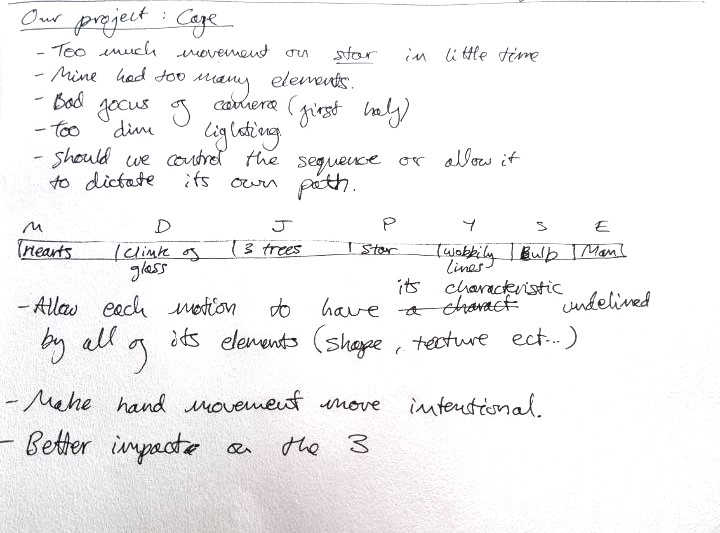 Our project : Cage
- Too much movement on star in little time
- Mine had too many elements.
- Bad focus of camera (first half)
- Too dim lighting.
- Should we control the sequence or allow it
to dictate its own path.
M D J P Y S E
Hearts | clink of glass | 3 trees | Star | wobbily lines | Bulb | Man
its characteristic
- Allow each motion to have a charact undelined
by all of its elements (shape, tecture ect...)
- Make hand movement more intentional.
- Better impact on the 3